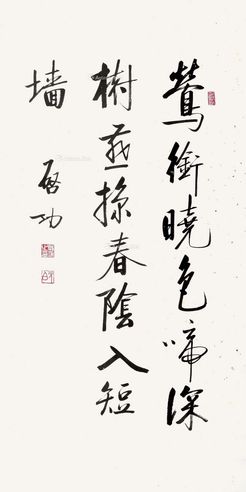 鶯銜曉色啼深
樹燕掠春陰入短
墙
啟功